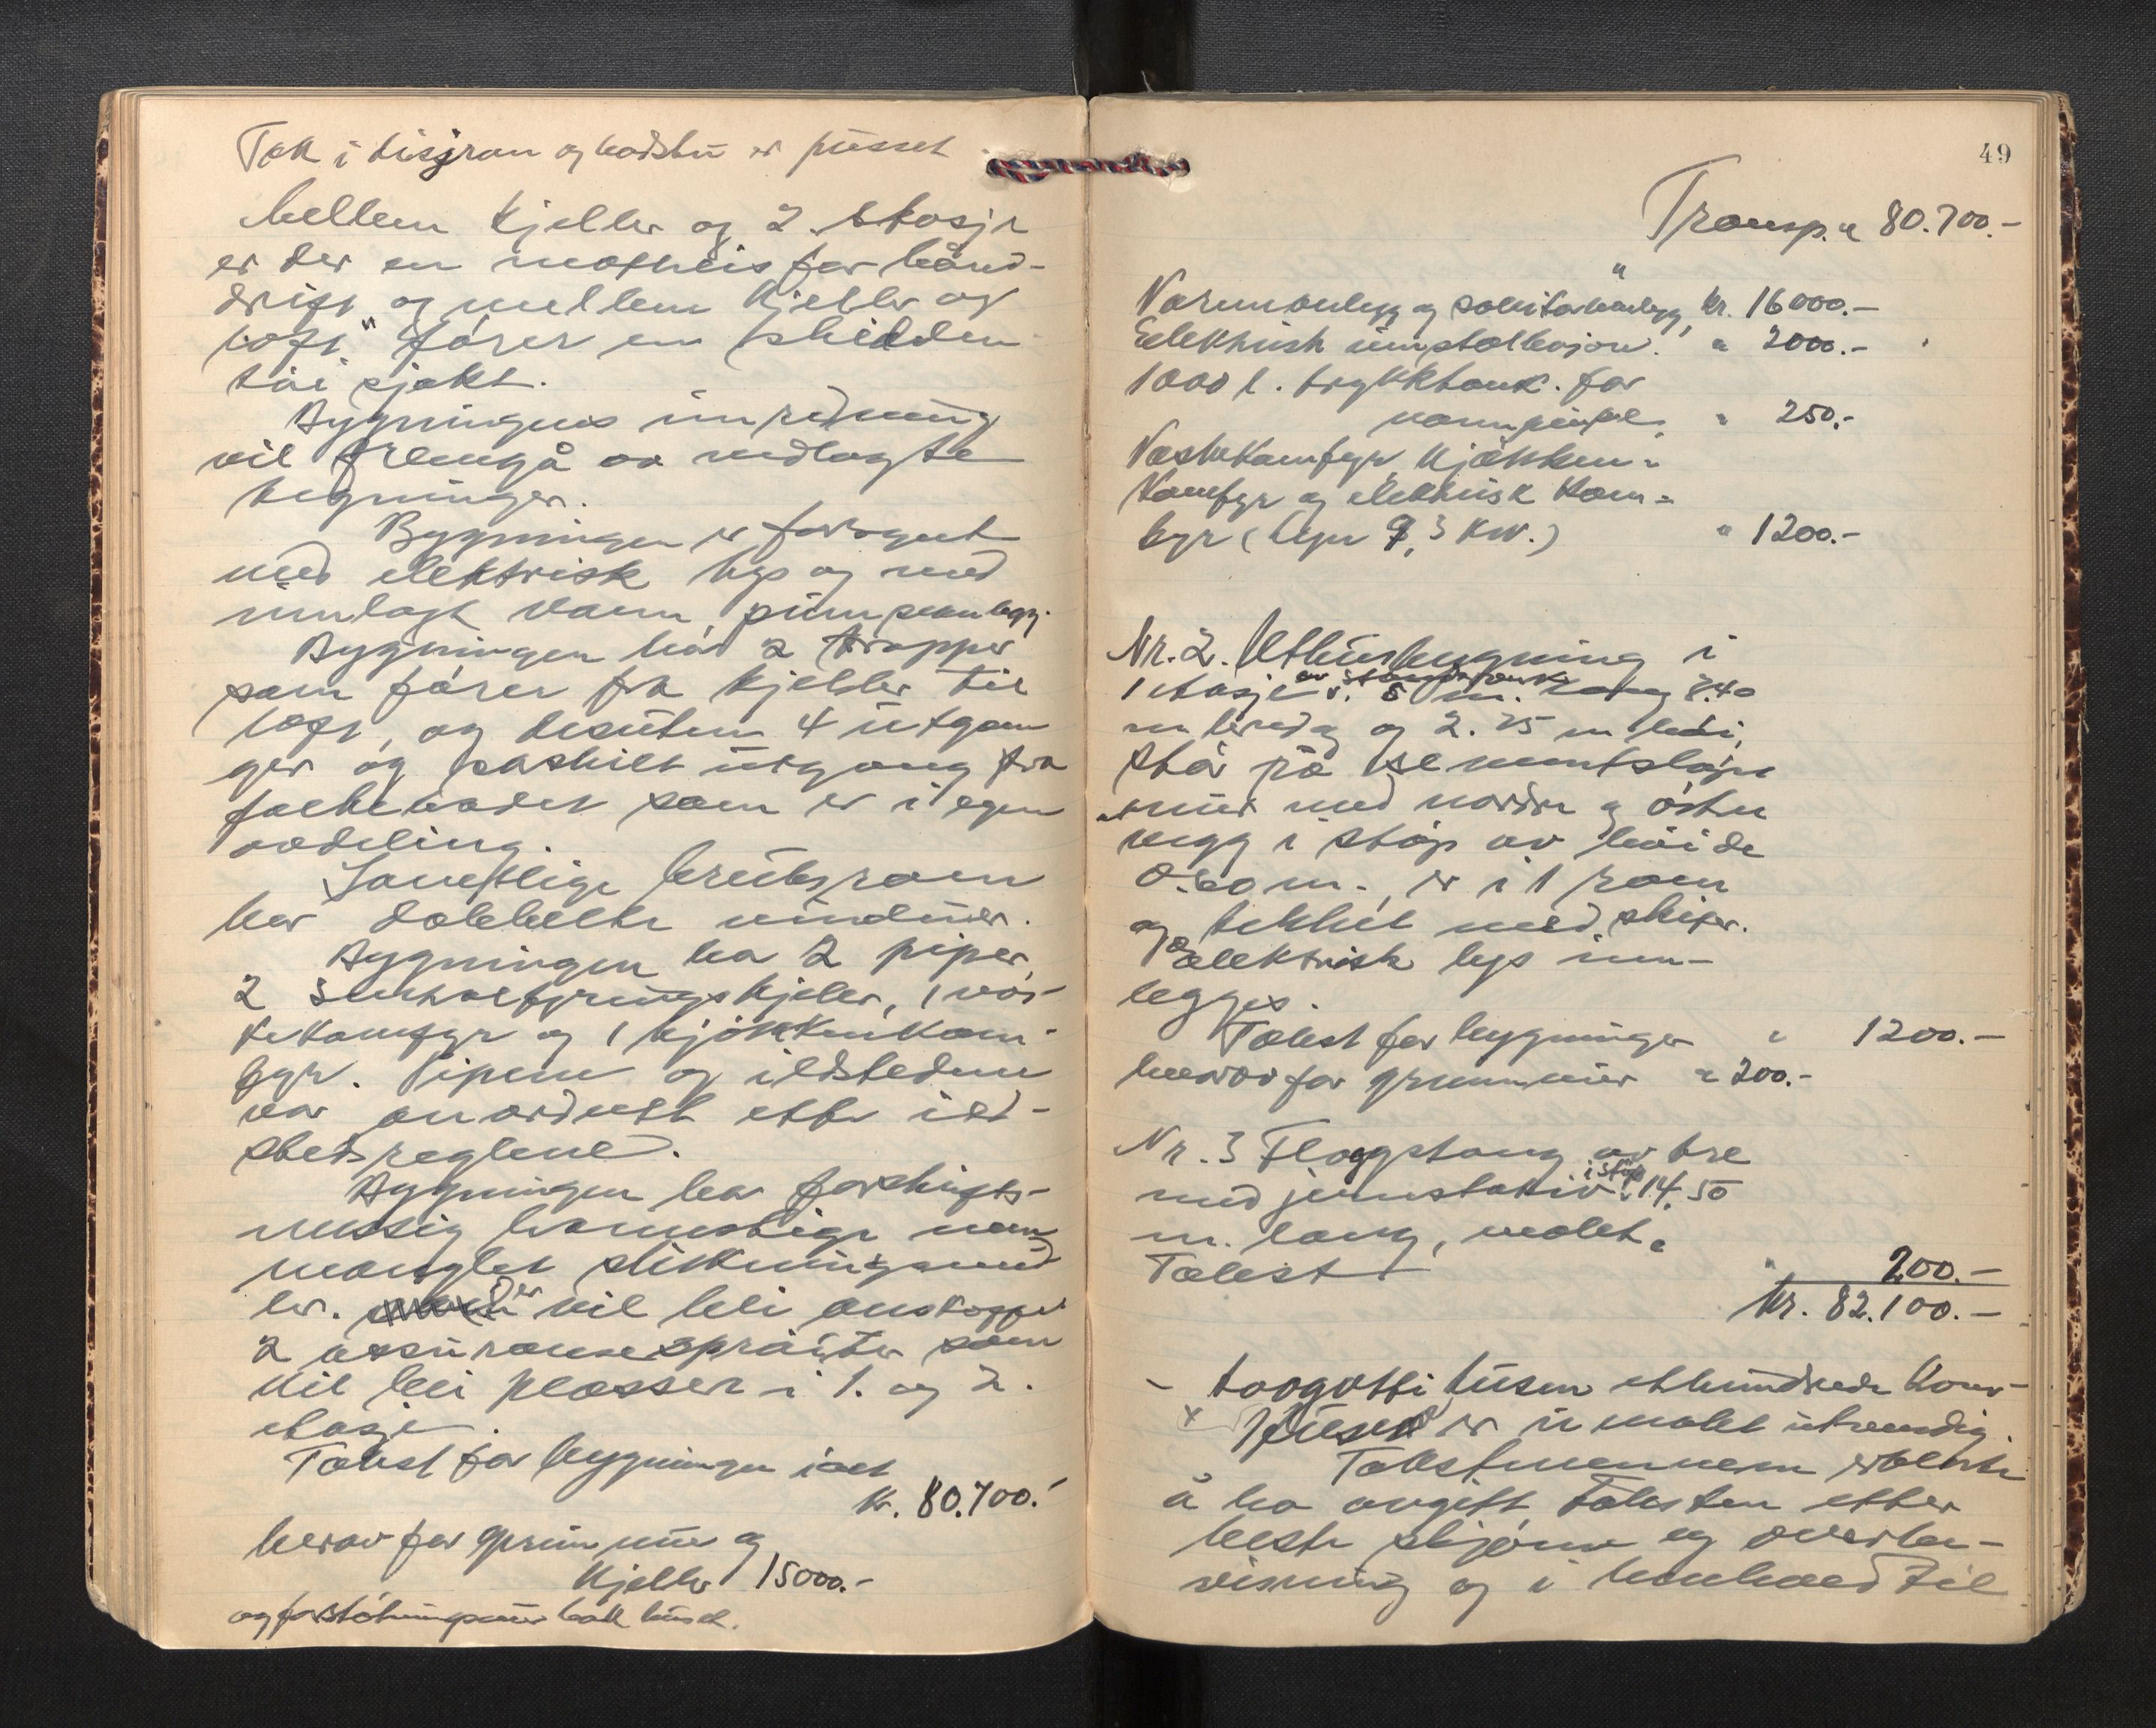 Tak i disjron og badstu er pusset
Mellem kjeller og 2. etasje
er der en matheis for hånd-
drift og mellem kjeller og
loft fører en skidden
tøi sjakt.
Bygningens innredning
vil fremgå av vedlagte
tegninger.
Bygningen er forsynt
med elektrisk lys og med
innlagt vann, pumpeanlegg.
Bygningen har 2 trapper
som fører fra kjeller til
loft, og desuten 4 utgan
ger og særskilt utgang fra
som er i egen
avdeling.
Samtlige bruksrom
har dobbelte vinduer.
Bygningen har 2 piper,
2 sentralfyringskjeler, 1 vas-
kekomfyr og 1 kjøkkenkom-
fyr. Pipene og ildstedene
var anordnet efter ild-
stedsreglene.
Bygningen har forskrifts-
messig brannstige men
mangler slukningsmid
ler. Der vil bli anskaffet
2 assuransesprøiter som
vil bli plassert i 1. og 2.
etasje.
Takst for bygningen ialt
kr. 80.700.-
herav for grunnmur og
kjeller 15000.-
og forstøtningsmur bak huset.
49
Transp. " 80.700.-
Varmeanlegg og sanitæranlegg, kr. 16000.-
Elektrisk innstallasjon. " 2000.-
1000 l. trykktank for
vannpumpe " 250.-
Vaskekomfyr, kjøkken-
komfyr og elektrisk kom-
fyr (lyn 9,3 kw.) " 1200.-
Nr. 2. Uthusbygning i
1 etasje av stenderverk 5 m. lang 3.40
m bred og 2.25 m høi,
står på sementstøpt
mur med nordre og østre
vegg i støp av høide
0.60 m., er i 1 rom
og tekket med skifer.
Elektrisk lys inn-
legges.
Takst for bygningen " 1200.-
herav for grunnmur " 200.-
Nr. 3 Flagstang av tre
med jernstativ i støp, 14.50
m. lang, malet.
Takst " 200.-
kr. 82.100.-
- toogotti tusen ethundrede kron-
x Huset er umalet utvendig.
Takstmennene erklærte
å ha avgitt taksten efter
beste skjønn og overbe-
visning og i henhold til